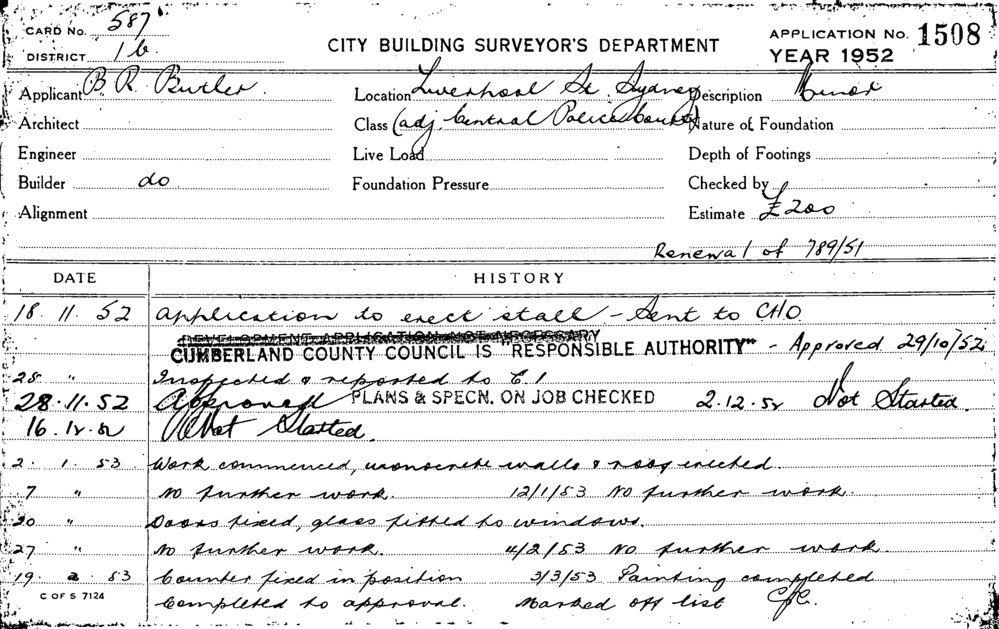 CARD No. 587
DISTRICT 16
CITY BUILDING SURVEYOR'S DEPARTMENT
APPLICATION No. 1508
YEAR 1952
Applicant B. R. Butler. Location Liverpool St. Sydney Description Minor
Architect Class (adj. Central Police Courts) Nature of Foundation
Engineer Live Load Depth of Footings
Builder do Foundation Pressure Checked by
Alignment Estimate £200
Renewal of 789/51
DATE HISTORY
18. 11. 52 Application to erect stall - Sent to CHO
DEVELOPMENT APPLICATION NOT NECESSARY
CUMBERLAND COUNTY COUNCIL IS "RESPONSIBLE AUTHORITY" - Approved 29/10/52
28 " Inspected & reported to C.I
28.11.52 Approved PLANS & SPECN. ON JOB CHECKED 2.12.52 Not Started.
16.12.52 Not Started.
2. 1. 53 Work commenced, monocrete walls & roof erected.
7 " No further work. 12/1/53 No further work.
20 " Doors fixed, glass fitted to windows.
27 " No further work. 4/2/53 No further work.
19 2 53 Counter fixed in position 3/3/53 Painting completed
C OF S 7124
Completed to approval. Marked off list